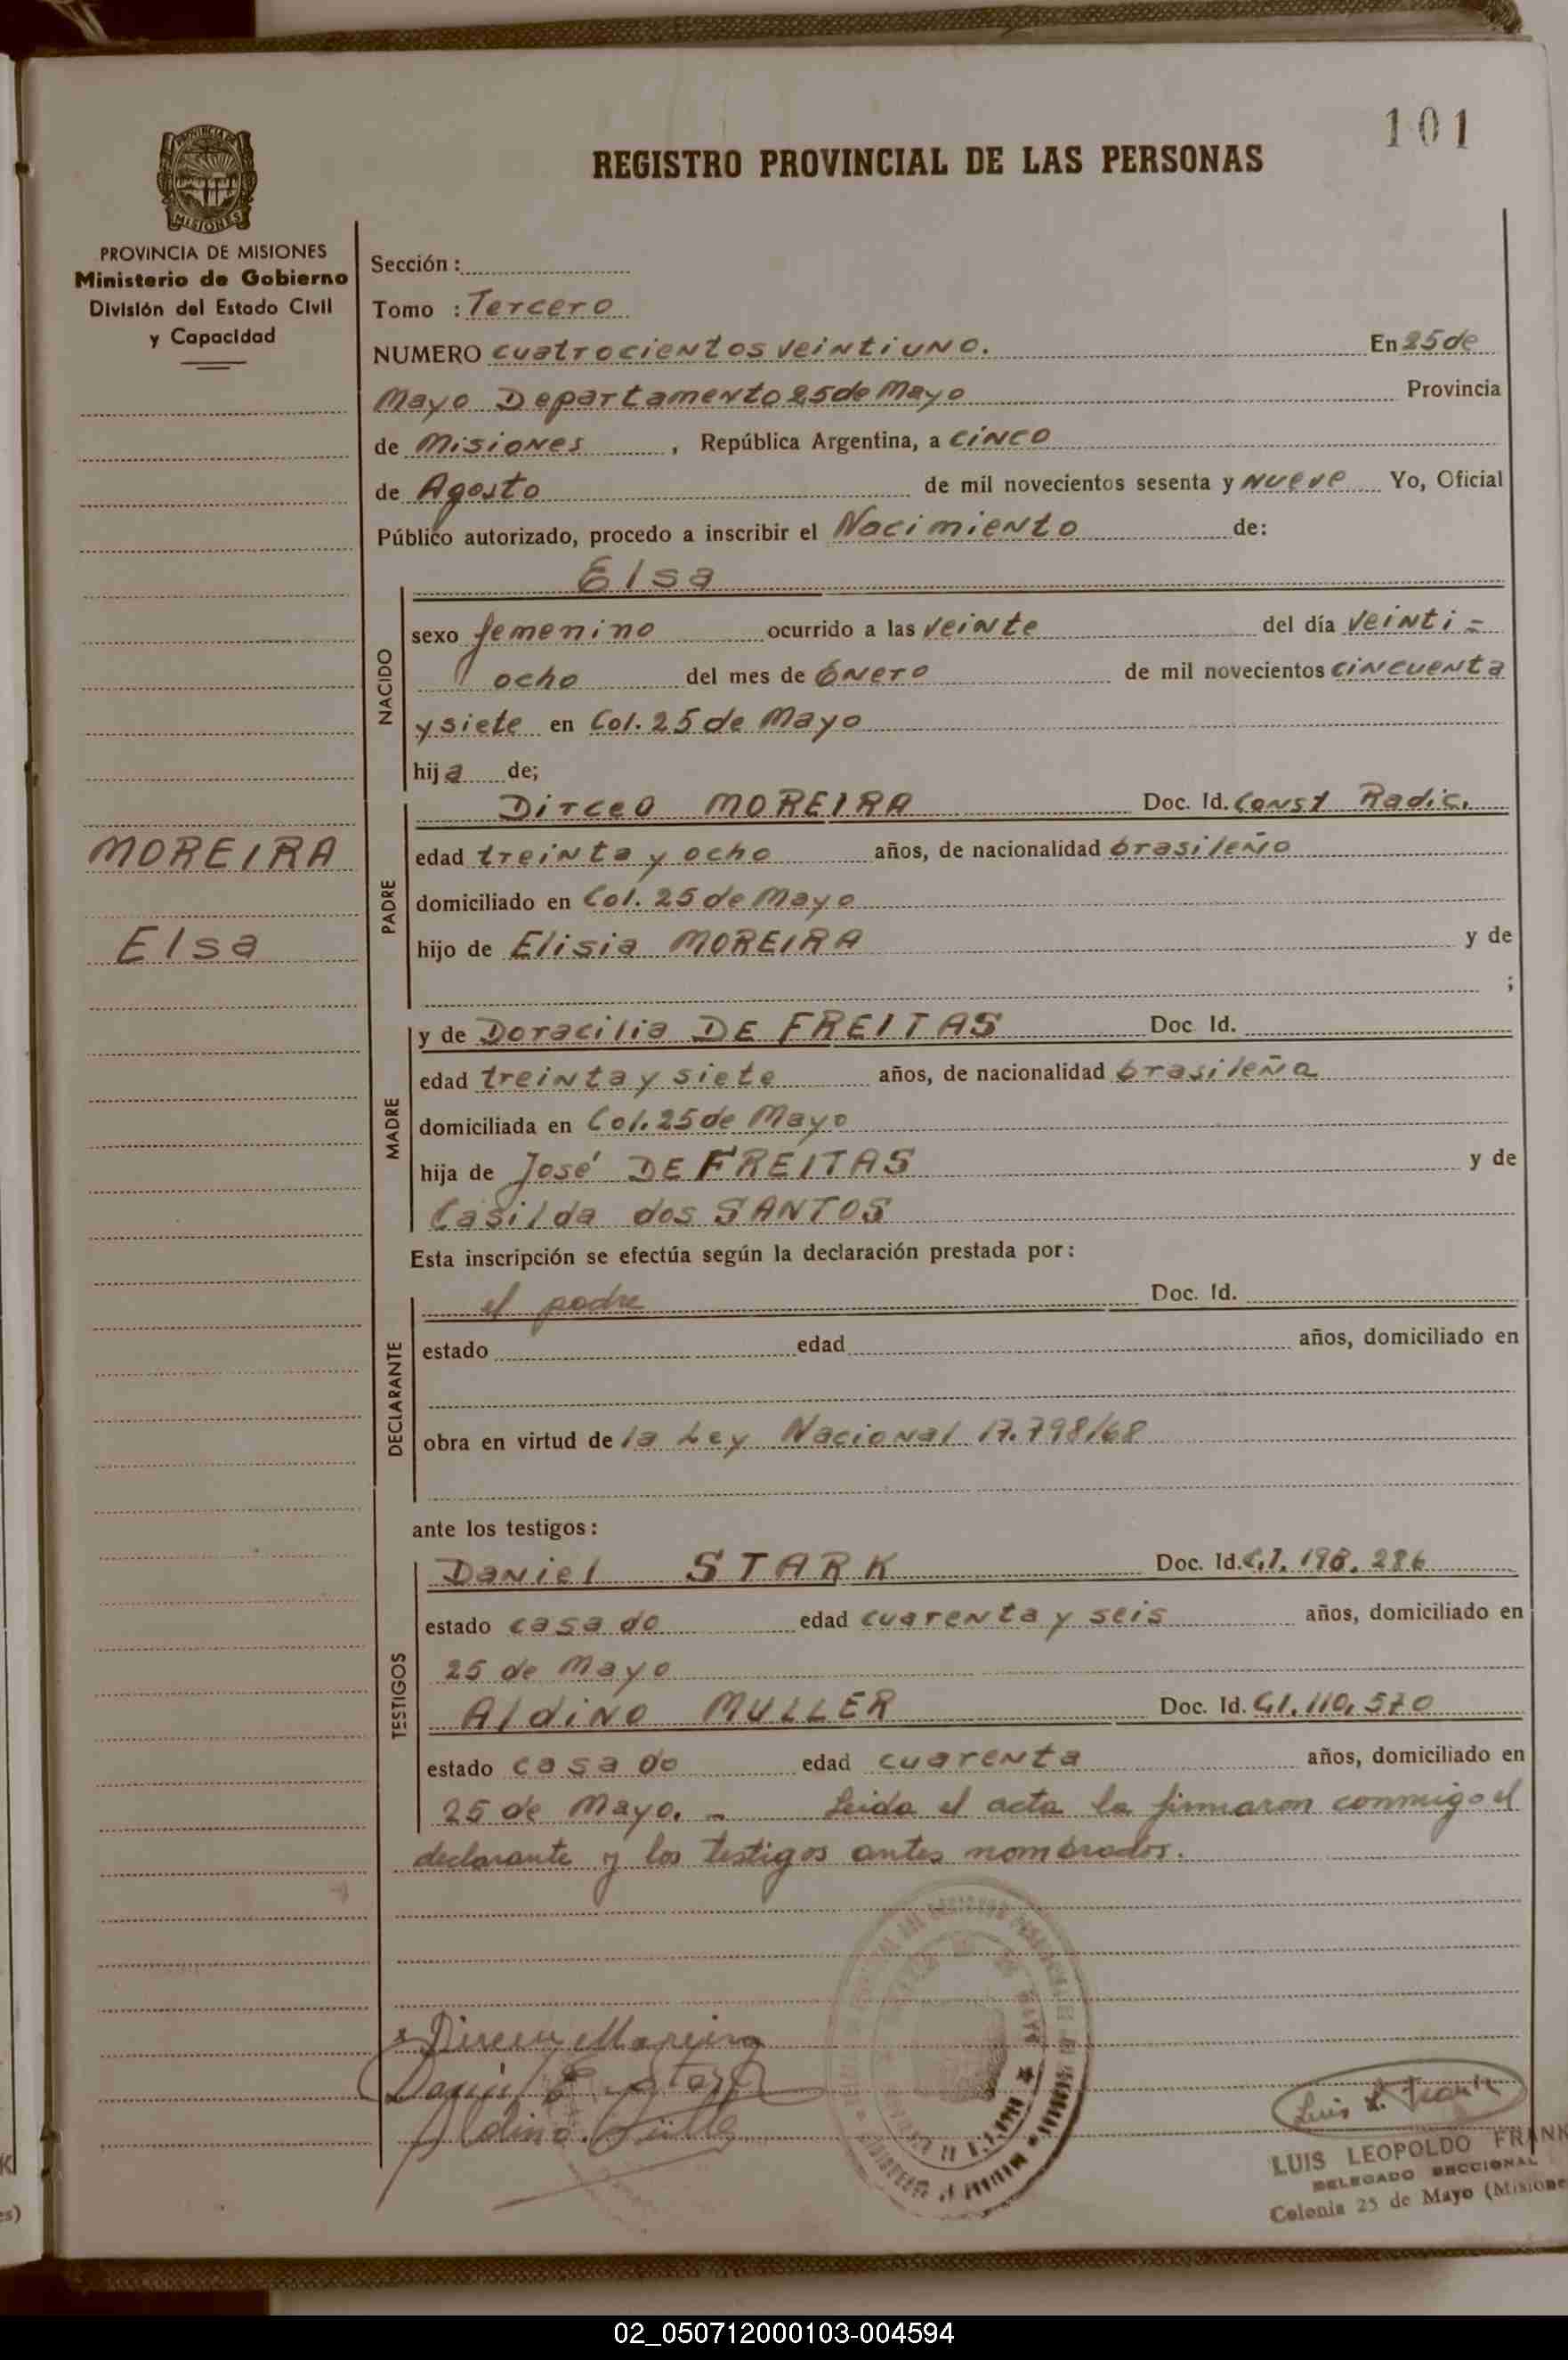 101
REGISTRO PROVINCIAL DE LAS PERSONAS
PROVINCIA DE MISIONES
Ministerio de Gobierno
División del Estado Civil
y Capacidad
MOREIRA
Elsa
Sección:
Tomo : Tercero
NUMERO cuatrocientos veintiuno. En 25 de
Mayo Departamento 25 de Mayo Provincia
de Misiones, República Argentina, a cinco
de Agosto de mil novecientos sesenta y nueve Yo, Oficial
Público autorizado, procedo a inscribir el Nacimiento de:
NACIDO
Elsa
sexo femenino ocurrido a las veinte del día veinti-
ocho del mes de Enero de mil novecientos cincuenta
y siete en Col. 25 de Mayo
hija de;
PADRE
Dirceo MOREIRA Doc. Id. Const Radic.
edad treinta y ocho años, de nacionalidad brasileño
domiciliado en Col. 25 de Mayo
hijo de Elisia MOREIRA y de
;
MADRE
y de Doracilia DE FREITAS Doc Id.
edad treinta y siete años, de nacionalidad brasileña
domiciliada en Col. 25 de Mayo
hija de José DE FREITAS y de
Casilda dos SANTOS
Esta inscripción se efectúa según la declaración prestada por:
DECLARANTE
el padre Doc. Id.
estado edad años, domiciliado en
obra en virtud de la Ley Nacional 17.798/68
ante los testigos:
TESTIGOS
Daniel STARK Doc. Id. C.I. 198.286
estado casado edad cuarenta y seis años, domiciliado en
25 de Mayo
Aldino MULLER Doc. Id. C.I. 110.570
estado casado edad cuarenta años, domiciliado en
25 de Mayo. - Leida el acta la firmaron conmigo el
declarante y los testigos antes nombrados.
Dirceu Moreira
Daniel E. Stark
Aldino Müller
Luis L. Frank
LUIS LEOPOLDO FRANK
DELEGADO SECCIONAL
Colonia 25 de Mayo (Misione
02_050712000103-004594